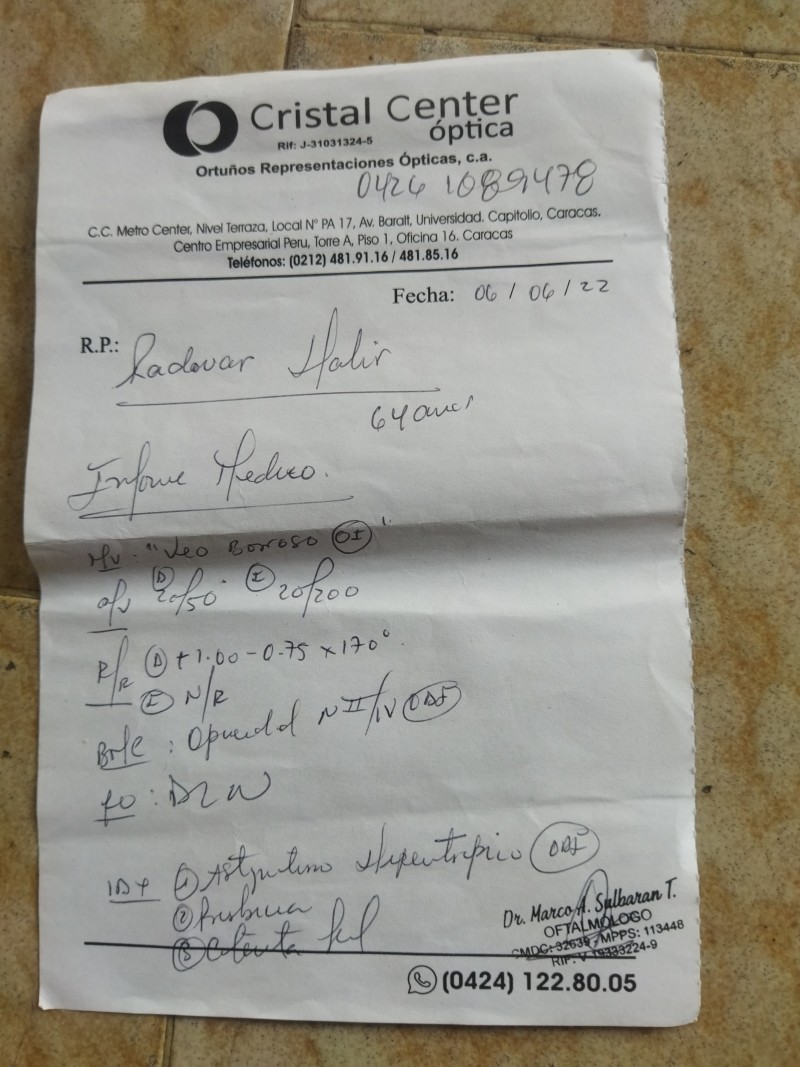 Cristal Center
óptica
Rif: J-31031324-5
Ortuños Representaciones Ópticas, c.a.
0426 1089478
C.C. Metro Center, Nivel Terraza, Local N° PA 17, Av. Baralt, Universidad. Capitolio, Caracas.
Centro Empresarial Peru, Torre A, Piso 1, Oficina 16. Caracas
Teléfonos: (0212) 481.91.16 / 481.85.16
Fecha: 06 / 06 / 22
R.P.:
64 años
Informe Medico.
"Veo Borroso OI"
D 20/50 I 20/200
R/R D +1.00 -0.75 x 170°
I N/R
N II/IV ODI
FO:
IDX 1 Astigmatismo ODI
2 Presbicia
3 Catarata
Dr. Marco A. Sulbaran T.
OFTALMÓLOGO
CMDC: 32639 MPPS: 113448
(0424) 122.80.05